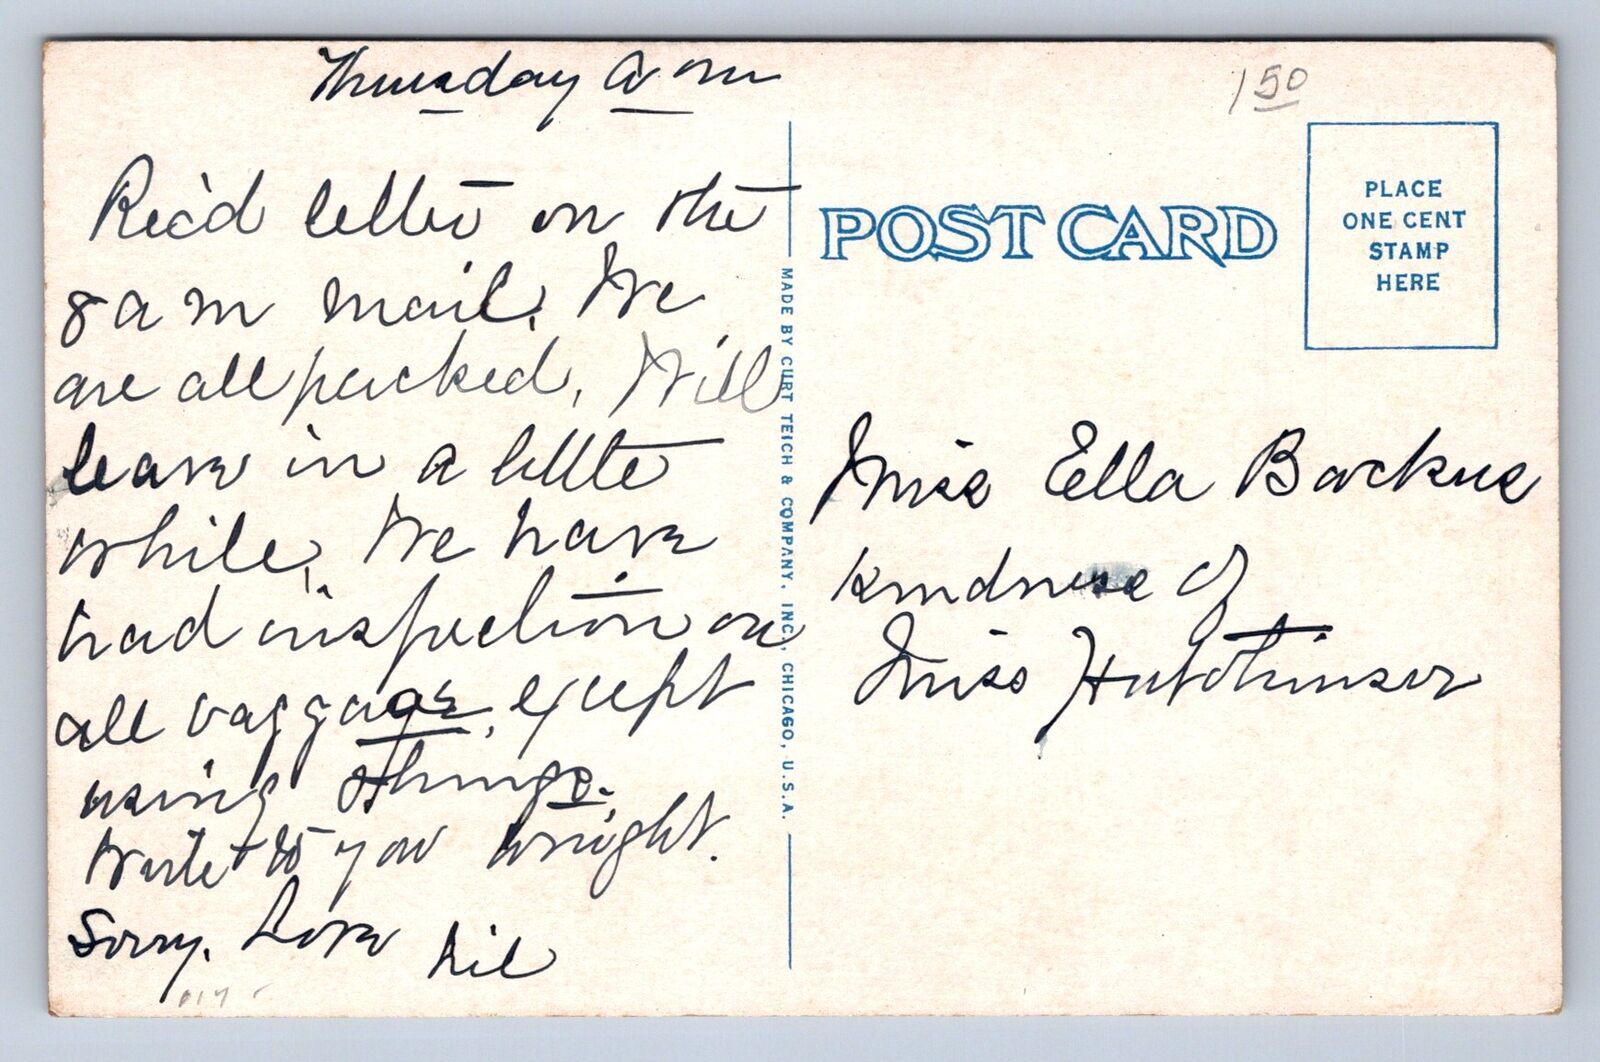 Thursday a m
Rec'd letter on the
8 a m mail. We
are all packed. Will
leave in a little
while. We have
had inspection on
all baggage, except
using things.
Write to you to night.
Sorry. Love Lil
150
POST CARD
PLACE
ONE CENT
STAMP
HERE
MADE BY CURT TEICH & COMPANY, INC., CHICAGO, U.S.A.
Miss Ella Backus
kindness of
Miss Hutchinson